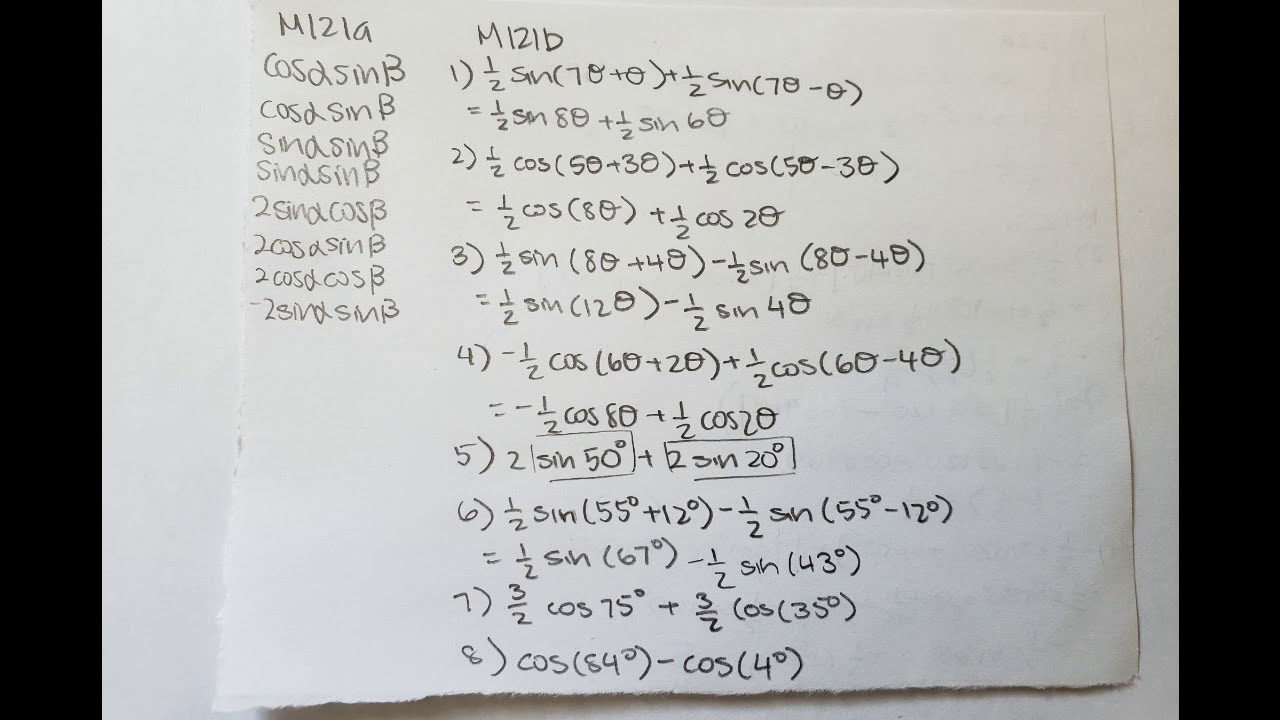 M121a
cosαsinβ
cosαsinβ
sinαsinβ
sinαsinβ
2sinαcosβ
2cosαsinβ
2cosαcosβ
-2sinαsinβ
M121b
1) 1/2 sin(7θ+θ)+1/2 sin(7θ-θ)
= 1/2 sin 8θ + 1/2 sin 6θ
2) 1/2 cos(5θ+3θ)+1/2 cos(5θ-3θ)
= 1/2 cos(8θ) + 1/2 cos 2θ
3) 1/2 sin (8θ+4θ) - 1/2 sin (8θ-4θ)
= 1/2 sin(12θ) - 1/2 sin 4θ
4) -1/2 cos(6θ+2θ)+1/2 cos(6θ-4θ)
= -1/2 cos8θ + 1/2 cos2θ
5) 2 sin 50° + 2 sin 20°
6) 1/2 sin(55°+12°) - 1/2 sin (55°-12°)
= 1/2 sin (67°) - 1/2 sin (43°)
7) 3/2 cos 75° + 3/2 cos(35°)
8) cos(84°) - cos(4°)